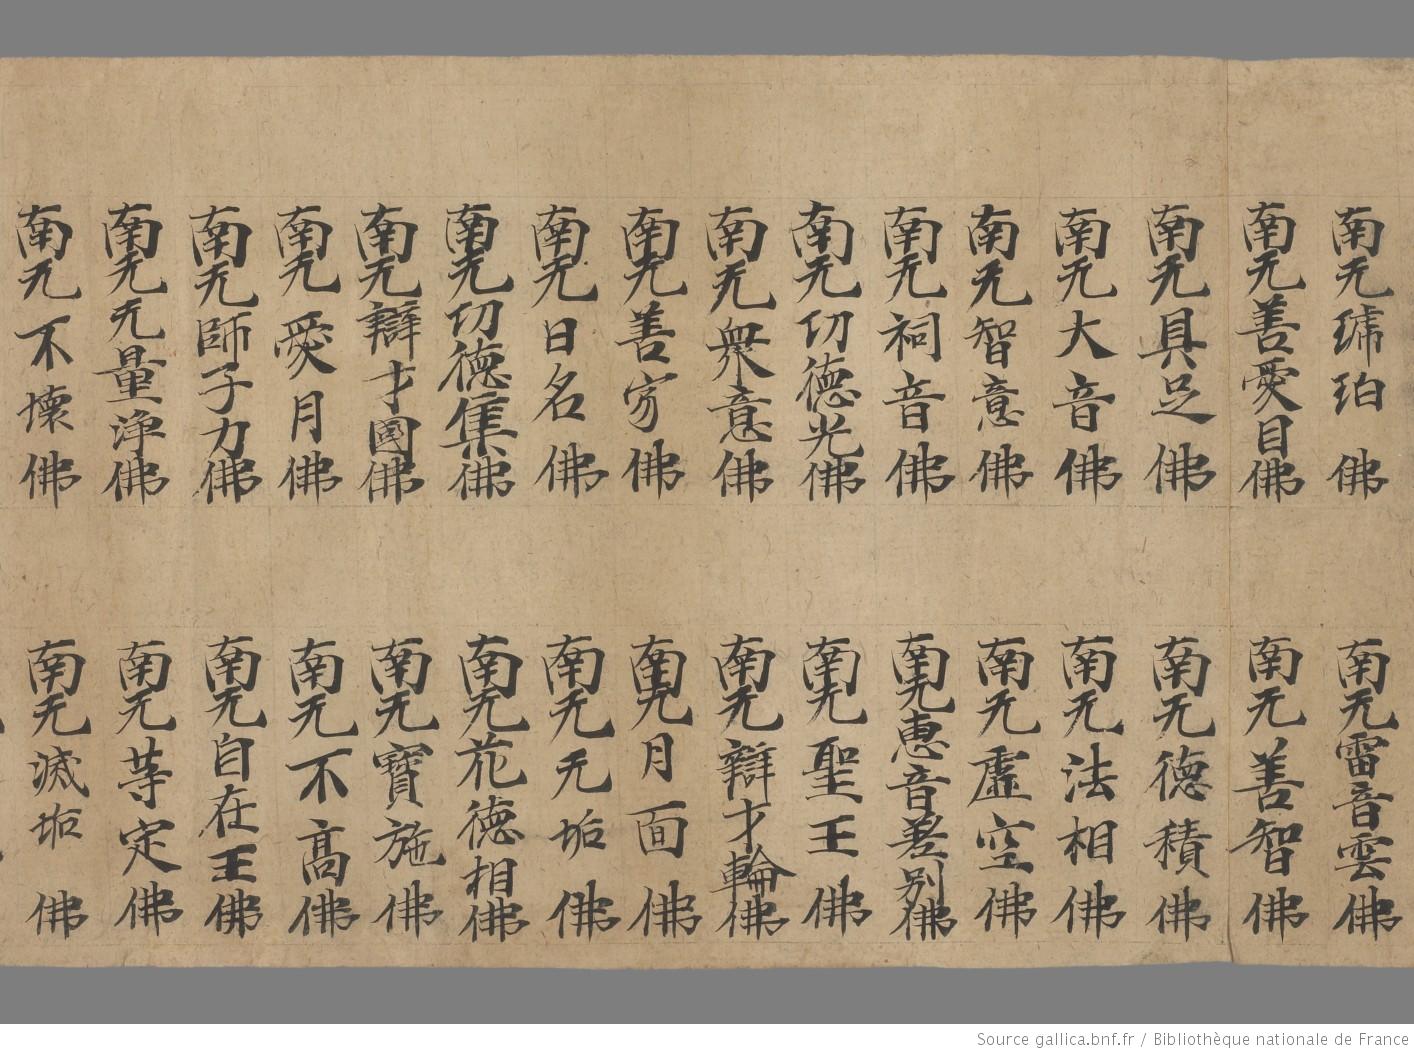 南无㻉珀佛
南无善愛目佛
南无具足佛
南无大音佛
南无智意佛
南无祠音佛
南无切德光佛
南无衆意佛
南无善佛
南无日名佛
南无切德集佛
南无辯才國佛
南无愛月佛
南无師子力佛
南无无量淨佛
南无不壞佛
南无雷音雲佛
南无善智佛
南无德積佛
南无法相佛
南无虛空佛
南无惠音差别佛
南无聖王佛
南无辯才輪佛
南无月面佛
南无无垢佛
南无花德相佛
南无寶施佛
南无不髙佛
南无自在王佛
南无等定佛
南无滅垢佛
Source gallica.bnf.fr / Bibliothèque nationale de France